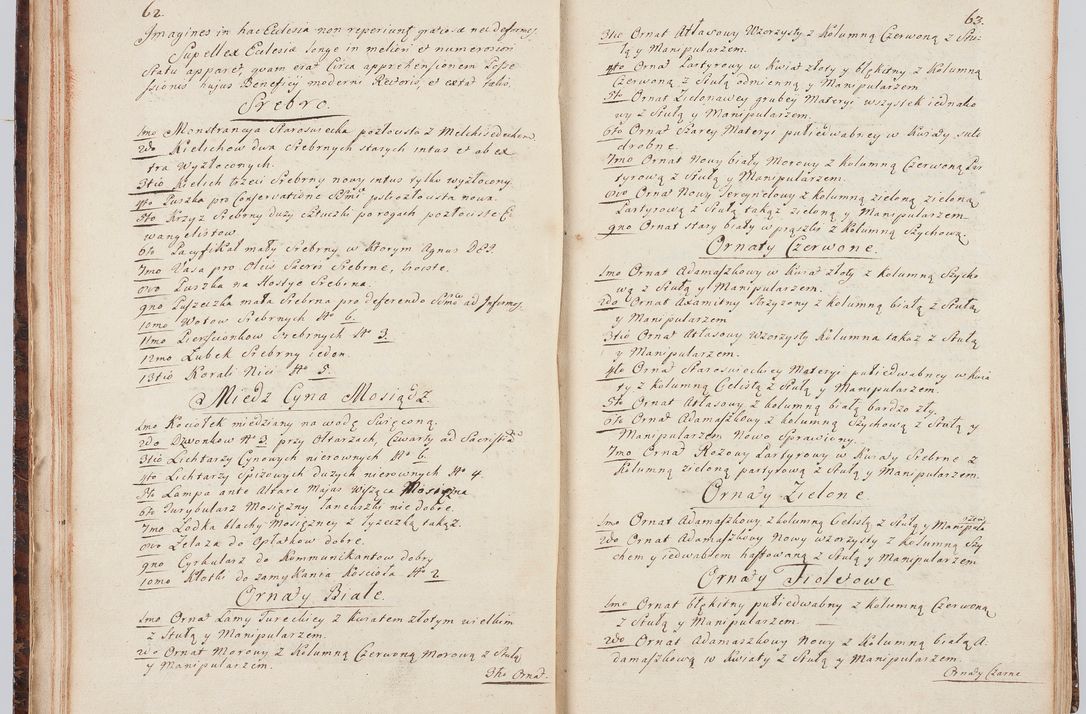 62.
Imagines in hac Ecclesia non reperiunt gratiosæ nec deformes
Supellex Ecclesiæ longe in meliori et numerosiori
Statu apparet quam erat Circa apprehensionem Posse
ssionis hujus Beneficij moderni Rectoris, et exta talis.
Srebro.
1mo Monstrancya Staroswiecka pozłocista z Melchisedechem
2do Kielichow dwa Srebrnych starych intus et ab ex
tra Wyzłoconych.
3tio Kielich trzeci Srebrny nowy intus tylko wyzłocony.
4to Puszka pro Conservatione SSmi pobrozłocista nowa.
5to Krzyz Srebrny duzy Sztuczki po rogach pozłociste E
wangelistow
6to Pacyfikał mały Srebrny w Ktorym Agnus DEI.
7mo Vasa pro Oleis Sacris Srebrne, troiste.
8vo Puszka na Hostye Srebrna.
9no Puszeczka mała Srebrna pro deferendo SSmo ad Infirmos.
10mo Wotow Srebrnych No 6.
11mo Pierscionkow Srebrnych No 3.
12mo Lubek Srebrny ieden.
13tio Korali Nici No 5.
Miedz Cyna Mosiądz
1mo Kociołek miedziany na wodę Swięconą.
2do Dzwonkow No 3 przy Ołtarzach, Czwarty ad Sacristia
3tio Lichtarzy Cynowych nierownych No 6.
4to Lichtarzy Spizowych Duzych nierownych No 4.
5to Lampa ante Altare Majus Wisząca Mosięzna
6to Turybularz Mosięzny łancuszki nie dobre.
7mo Łodka blachy Mosięzney z łyzeczką takąz.
8vo Zelaza do Opłatkow dobre.
9no Cyrkularz do Kommunikantow dobry
10mo Kłotki do zamykania Kościoła No 2
Ornaty Białe.
1mo Ornat Lamy Tureckiey z Kwiatem złotym wielkim
z Stułą y Manipularzem.
2do Ornat Morowy z Kolumną Czerwoną Morową z Stułą
y Manipularzem.
3tio Ornat.
63.
3tio Ornat Atłasowy Wzorzysty z Kolumną Czerwoną z Stu-
łą y Manipularzem.
4to Ornat Partyrowy w Kwiat złoty y błękitny z Kolumną
Czerwoną z Stułą odmienną y Manipularzem
5to Ornat Zielonawey grubey Materyi wszystek iednako
wy z Stułą y Manipularzem.
6to Ornat Szarey Materyi pułiedwabney w Kwiaty suto
drobne.
7mo Ornat Nowy biały Morowy z Kolumną Czerwoną Par
tyrową z Stułą y Manipularzem.
8vo Ornat Nowy Sergynelowy z Kolumną zieloną zieloną
Partyrową z Stułą takąz zieloną y Manipularzem
9no Ornat stary biały w prąszki z Kolumną Szychową.
Ornaty Czerwone.
1mo Ornat Adamaszkowy w Kwiat złoty z Kolumną Szycho
wą z Stułą y Manipularzem.
2do Ornat Axamitny Strzyzony z Kolumną białą z Stułą
y Manipularzem
3tio Ornat Atłasowy Wzorzysty Kolumna takaz z Stułą
y Manipularzem.
4to Ornat Staroswieckiey Materyi pułiedwabney w Kwia
ty z Kolumną Celistą z Stułą y Manipularzem.
5to Ornat Atłasowy z Kolumną białą bardzo zły.
6to Ornat Adamaszkowy z Kolumną Szychową z Stułą y
Manipularzem Nowo Sprawiony.
7mo Ornat Rozowy Partyrowy w Kwiaty Srebrne z
Kolumną zieloną partyrową z Stułą y Manipularzem.
Ornaty Zielone
1mo Ornat Adamaszkowy z Kolumną Celistą z Stułą y Manipula
rzem
2do Ornat Adamaszkowy Nowy wzorzysty z Kolumną Szy
chem y iedwabiem haftowaną z Stułą y Manipularzem
Ornaty Fiołkowe
1mo Ornat błękitny pułiedwabny z Kolumną Czerwoną
z Stułą y Manipularzem.
2do Ornat Adamaszkowy Nowy z Kolumną białą A
damaszkową w Kwiaty z Stułą y Manipularzem.
Ornaty Czarne